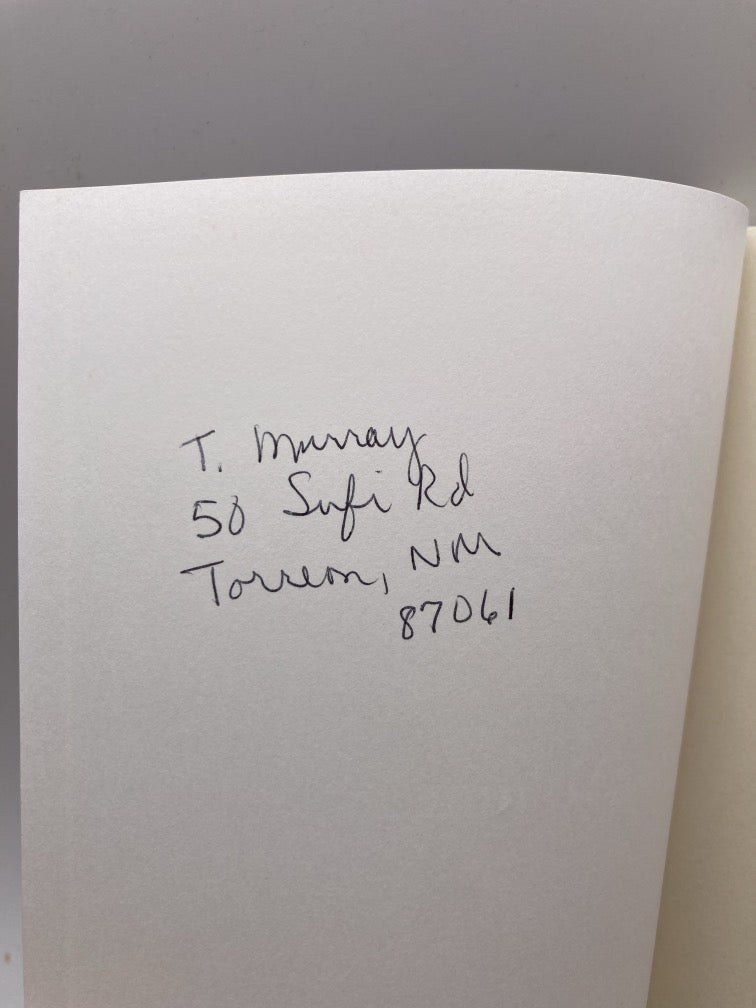 T. Murray
50 Sufi Rd
Torreon, NM
87061